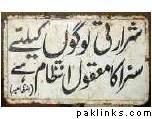 شرارتی لوگوں کیلئے
سزا کا معقول انتظام ہے
paklinks.com